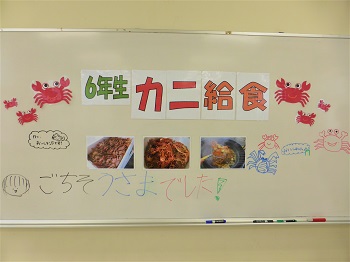 6年生
カニ給食
ごちそうさまでした!